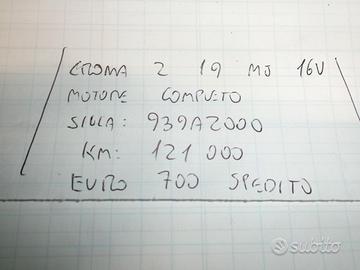 CROMA 2 19 MJ 16V
MOTORE COMPLETO
SIGLA: 939A2000
KM: 121 000
EURO 700 SPEDITO
subito